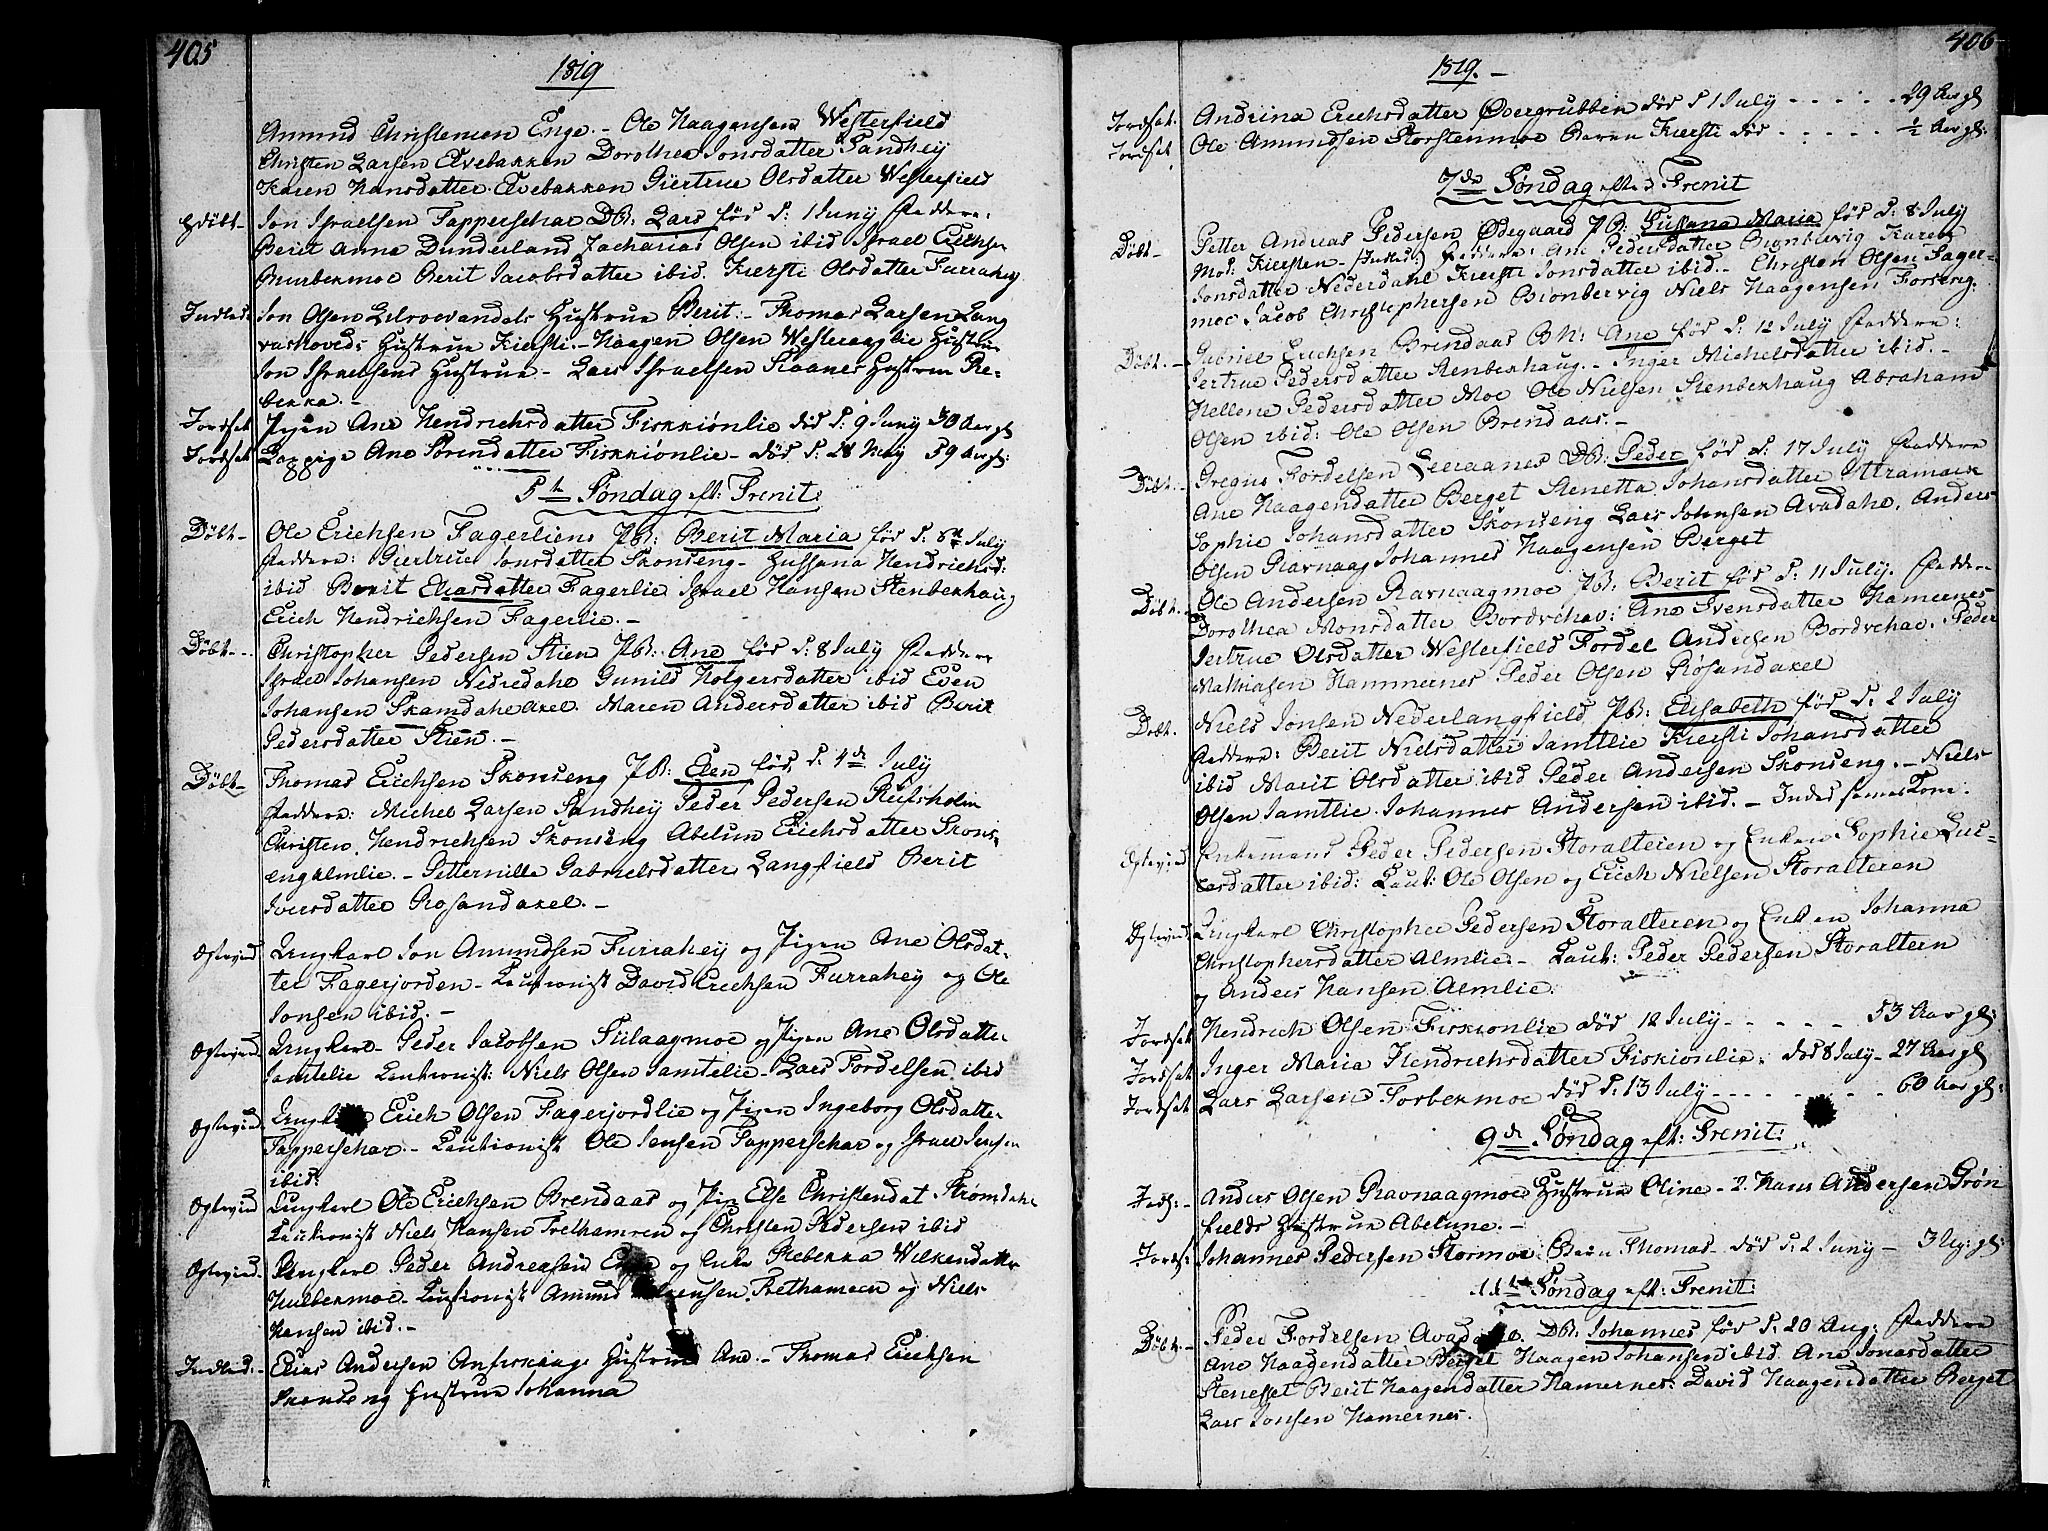 405
1819
Amund Christensen Enge. - Ole Haagensen Westerfield
Christen Larsen Elvebakken Dorothea Jonsdatter Sandhey
Karen Hansdatter Elvebakken Giertrue Olsdatter Westerfield
Jon Israelsen Tapperschar DB: Lars fød d: 1 Juny Faddere:
Berit Anna Dunderland Zacharias Olsen ibid Israel Erichsen
Berit Jacobsdatter ibid. Kiersti Olsdatter Furrahey
Indled. Jon Olsen Hustrue Berit. - Thomas Larsen Lang
Hustrue Kiersti. - Haagen Olsen Hustrue
Jon Israelsens Hustrue - Lars Israelsen Hustrue Re-
bekka. -
Jordset Pigen Ane Hendrichsdatter Fiskkiønlie død d: 9 Juny 30 Aar gl
Jordset Ane Sørensdatter Fiskkiønlie - død d: 28 May 59 Aar gl:
5te Søndag eft: Trenit:
Døbt - Ole Erichsen Fagerliens PB: Berit Maria fød d: 6te July
Faddere: Giertrue Jonsdatter Skonseng - Zussana Hendrichsd:
ibid Berit Eliasdatter Fagerlie Israel Hansen Stenbekhaug
Erich Hendrichsen Fagerlie. -
Døbt - Christopher Pedersen Stien PB: Ane fød d: 8 July Faddere
Israel Johansen Nedredahl Gunild Holgersdatter ibid Even
Johansen Skamdahl axel. Maren Andersdatter ibid Berit
Pedersdatter Stien. -
Døbt - Thomas Erichsen Skonseng PB: Elen fød d. 4de July
Faddere: Michel Larsen Sandhey Peder Pedersen Reifsholm
Christen Hendrichsen Skonseng Abelun Erichsdatter Skons-
eng Almlie. - Petternille Gabrielsdatter Langfield Berit
Iversdatter Røsandaxel. -
Ogteviid Ungkarl Jon Amundsen Furrahey og Pigen Ane Olsdat-
ter Fagerjorden - Cautionist David Erichsen Furrahey og Ole
Jonsen ibid. -
Ogteviid Ungkarl Peder Jacobsen og Pigen Ane Olsdatter
Jamtelie Cautionist: Niels Olsen Jamtelie - Lars Tordelsen ibid
Ogteviid Erich Olsen Fagerjordlie og Pigen Ingeborg Olsdatter
Tapperschar - Cautionist Ole Jensen Tapperschar og Israel Jensen
ibid:
Ogteviid Ungkarl Ole Erichsen Brendaas og Pig Else Christendat Strømdahl
Cautionist Niels Hansen og Christen Pedersen ibid
Ogteviid - Ungkarl Peder Andreasen og Enke Rebekka
Cautionist Amund og Niels
Hansen ibid. -
Indled: - Elias Andersen Hustrue Ane - Thomas Erichsen
Skonseng Hustrue Johanna
406
1819. -
Jordset. Andrina Erichsdatter Øvergrubben død d 1 July - - - - - 29 Aar gl
Jordset Ole Amundsen Storstenmoe Baren Kiersti død - - - - - 1/2 Aar gl:
7de Søndag efter Trenit
Døbt - Petter Andreas Pedersen Ødegaard PB: Susana Maria fød d: 8 July
Mod: Kiersten - Faddere: Ane Pedersdatter Karen
Jonsdatter Nederdahl Kiersti Jonsdatter ibid. - Christen Olsen Fager-
moe Jacob Christophersen Niels Haagensen
Døbt. - Gabriel Erichsen Brendaas PB: Ane fød d: 12 July Faddere:
Jertrue Pedersdatter Stenbekhaug. - Inger Michelsdatter ibid. -
Hellene Pedersdatter Moe Ole Nielsen Stenbekhaug Abraham
Olsen ibid: Ole Olsen Brendaas. -
Døbt. - Gregus Tordelsen DB: Peder fød d: 17 July Faddere
Ane Haagendatter Berget Stenetta Johansdatter Ittramark
Sophie Johansdatter Skonseng Lars Johnsen Avadahl, Anders
Olsen Ravnaag Johannes Haagensen Berget
Døbt. Ole Andersen Ravnaagmoe PB: Berit fød d: 11 July. Faddere
Dorothea Monsdatter Bordvehav: Ane Svensdatter Hamernes
Jertrue Olsdatter Westerfield Tordel Andersen Bordvehav. Peder
Mathiasen Hammernes Peder Olsen Røsandaxel
Døbt. Niels Jonsen Nederlangfield PB: Elisabeth fød d: 2 July
Faddere: Berit Nielsdatter Jamtlie Kiersti Johansdatter
ibid Marit Olsdatter ibid Peder Andersen Skonseng. - Niels
Olsen Jamtlie Johannes Andersen ibid. - Indled samme Kone.
Ogteviid Enkemand Peder Pedersen Storalteren og Enken Sophie Luc-
casdatter ibid: Caut: Ole Olsen og Erich Nielsen Storalteren
Ogteviid Ungkarl Christopher Pedersen Storalteren og Enken Johanna
Christophersdatter Almlie. - Caut: Peder Pedersen Storaltern
og Anders Hansen Almlie.
Jordset Hendrich Olsen Fiskkionlie død 12 July - - - - - 53 Aar gl:
Jordset Inger Maria Hendrichsdatter Fiskionlie. død 8 July - 27 Aar gl
Jordset Lars Larsen Forbekmoe død d: 13 July - - - - - - - - 60 Aar gl:
9de Søndag eft: Trenit:
Inds: - Anders Olsen Ravnaagmoe Hustrue Oline - 2. Hans Andersen Grøn
fields Hustrue Abelune. -
Jords: Johannes Pedersen Stormoe Barn Thomas - død d: 2 Juny - 3
11te Søndag eft: Trenit:
Døbt. - Peder Tordelsen DB: Johannes fød d: 20 Aug: Faddere
Ane Haagendatter Berget Haagen Johansen ibid Ane Jonasdatter
Stenesset Berit Haagendatter Hamernes: David Haagendatter Berget
Lars Jonsen Hamernes.